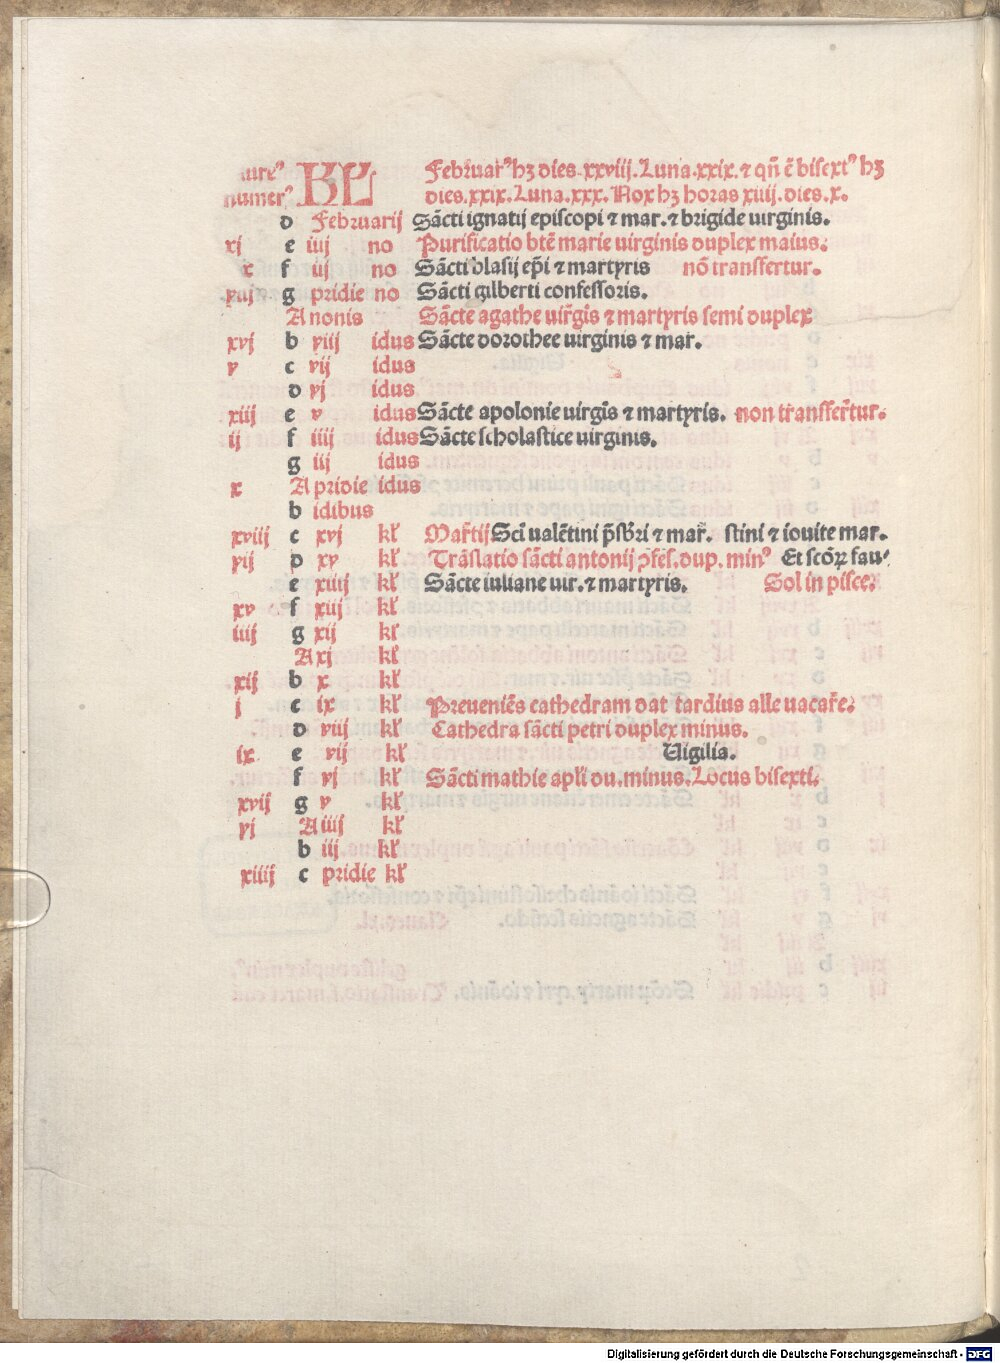 aure⁹ KL Februar⁹ hꝫ dies .xxviij. Luna .xxix. ⁊ qñ ē bisext⁹ hꝫ
numer⁹ dies .xxix. Luna .xxx. Nox hꝫ horas xiiij. dies .x.
d Februarij Sācti ignatij episcopi ⁊ mar. ⁊ brigide virginis.
xj e iiij no Purificatio btē marie virginis duplex maius.
x f iij no Sācti blasij ep̄i ⁊ martyris nō transfertur.
xuj g pridie no Sācti gilberti confessoris.
A nonis Sācte agathe uir̄gīs ⁊ martyris semi duplex
xvj b viij idus Sācte dorothee uirginis ⁊ mar.
v c vij idus
d vj idus
xiij e v idus Sācte apolonie uirgīs ⁊ martyris. non transfer̄tur.
ij f iiij idus Sācte scholastice uirginis.
g iij idus
x A pridie idus
b idibus
xviij c xvj kl̕ Mar̄tij Scī ualētini p̄sbr̄i ⁊ mar̄. stini ⁊ iouite mar.
vij d xv kl̕ Trāslatio sācti antonij ꝯfes̄. dup. min⁹ Et scōꝝ fau
e xiiij kl̕ Sācte iuliane uir. ⁊ martyris. Sol in pisce.
xv f xiij kl̕
iiij g xij kl̕
A xj kl̕
xij b x kl̕
j c ix kl̕ Preueniēs cathedram dat tardius alle uacar̄e.
d viij kl̕ Cathedra sācti petri duplex minus.
ix e vij kl̕ Uigilia.
f vj kl̕ Sācti mathie apl̄i du. minus. Locus bisexti.
xvij g v kl̕
vj A iiij kl̕
b iij kl̕
xiiij c pridie kl̕
Digitalisierung gefördert durch die Deutsche Forschungsgemeinschaft - DFG